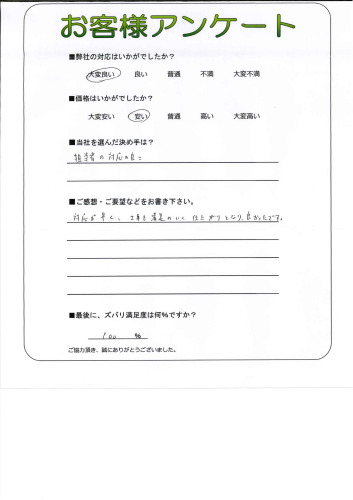 お客様アンケート
■弊社の対応はいかがでしたか？
大変良い 良い 普通 不満 大変不満
■価格はいかがでしたか？
大変安い 安い 普通 高い 大変高い
■当社を選んだ決め手は？
担当者の対応の良さ
■ご感想・ご要望などをお書き下さい。
対応が早く、工事も満足のいく仕上がりとなり、良かったです。
■最後に、ズバリ満足度は何％ですか？
100 ％
ご協力頂き、誠にありがとうございました。